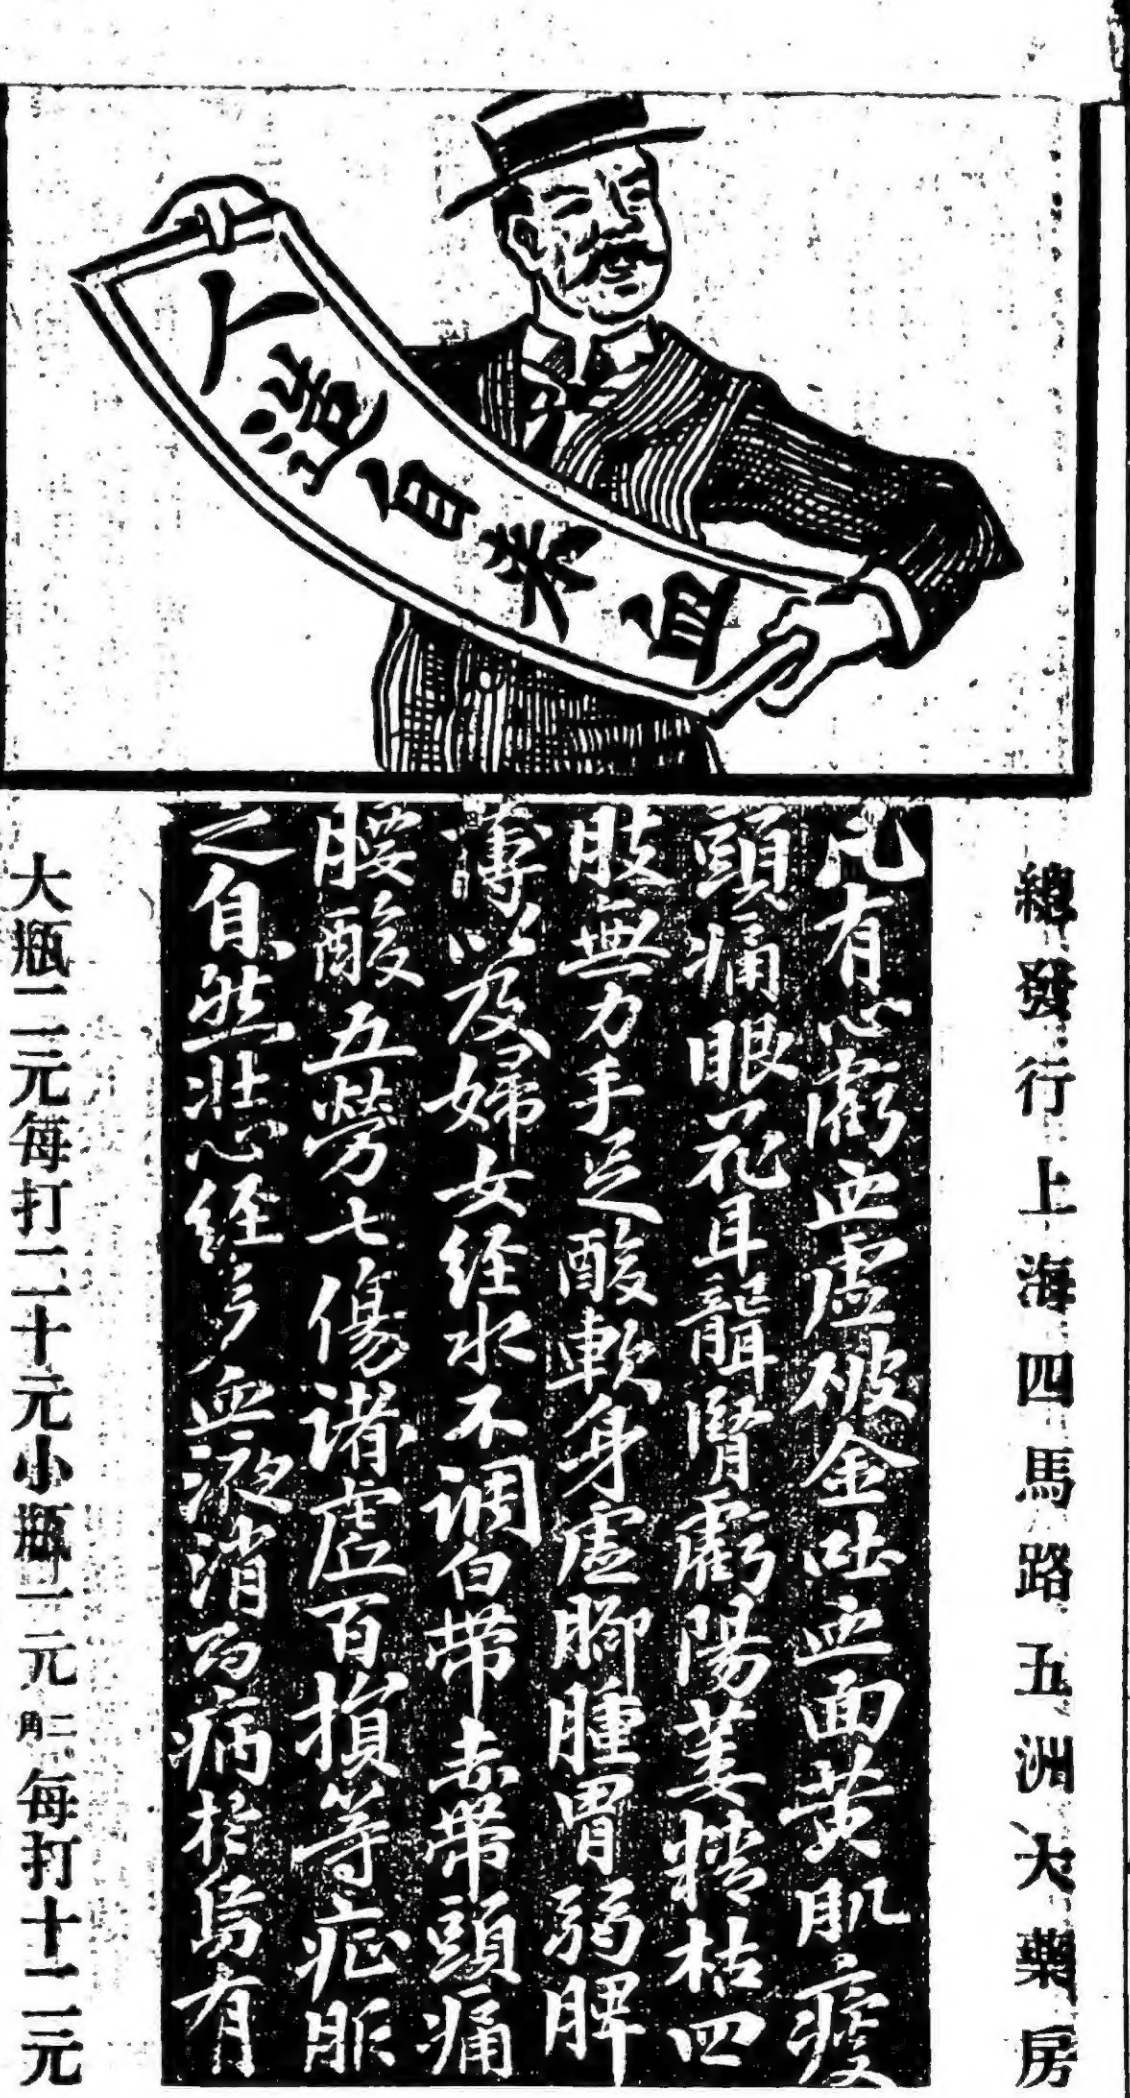 人造自來血
總發行上海四馬路五洲大藥房
凡有心虧血虛破金吐血面黃肌瘦
頭痛眼花耳聾腎虧陽萎精枯四
肢無力手足酸軟身虛脚腫胃弱脾
薄以及婦女经水不调白带赤带頭痛
腰酸五劳七傷诸虛百損等症服
之自然壯心经多血液消百病於烏有
大瓶二元每打二十元小瓶一元二角每打十二元